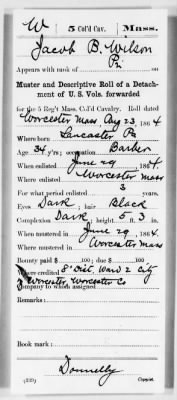 W 5 Col'd Cav. Mass.
Jacob B. Wilson
Appears with rank of Pr. on
Muster and Descriptive Roll of a Detach-
ment of U. S. Vols. forwarded
for the 5 Reg't Mass. Col'd Cavalry. Roll dated
Worcester Mass Aug 23, 1864
Where born Lancaster Pa
Age 34 y'rs; occupation Barber
When enlisted June 29, 1864
Where enlisted Worcester Mass
For what period enlisted 3 years.
Eyes Dark; hair Black
Complexion Dark; height 5 ft. 3 in.
When mustered in June 29, 1864.
Where mustered in Worcester Mass
Bounty paid $ 100; due $ 100
Where credited 8" Dist, Ward 2 City
Worcester, Worcester Co
Company to which assigned
Remarks:
Book mark:
Donnelly
(339) Copyist.